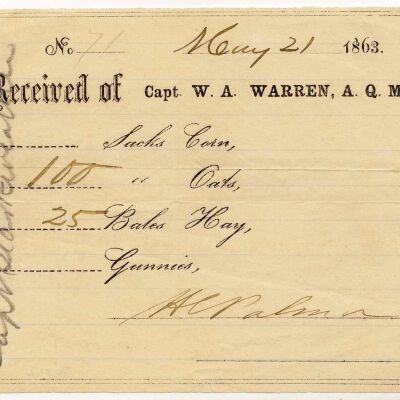 No. 71 May 21 1863.
Received of Capt. W. A. WARREN, A. Q. M
Sacks Corn,
100 " Oats,
25 Bales Hay,
Gunnies,
H C Palmer